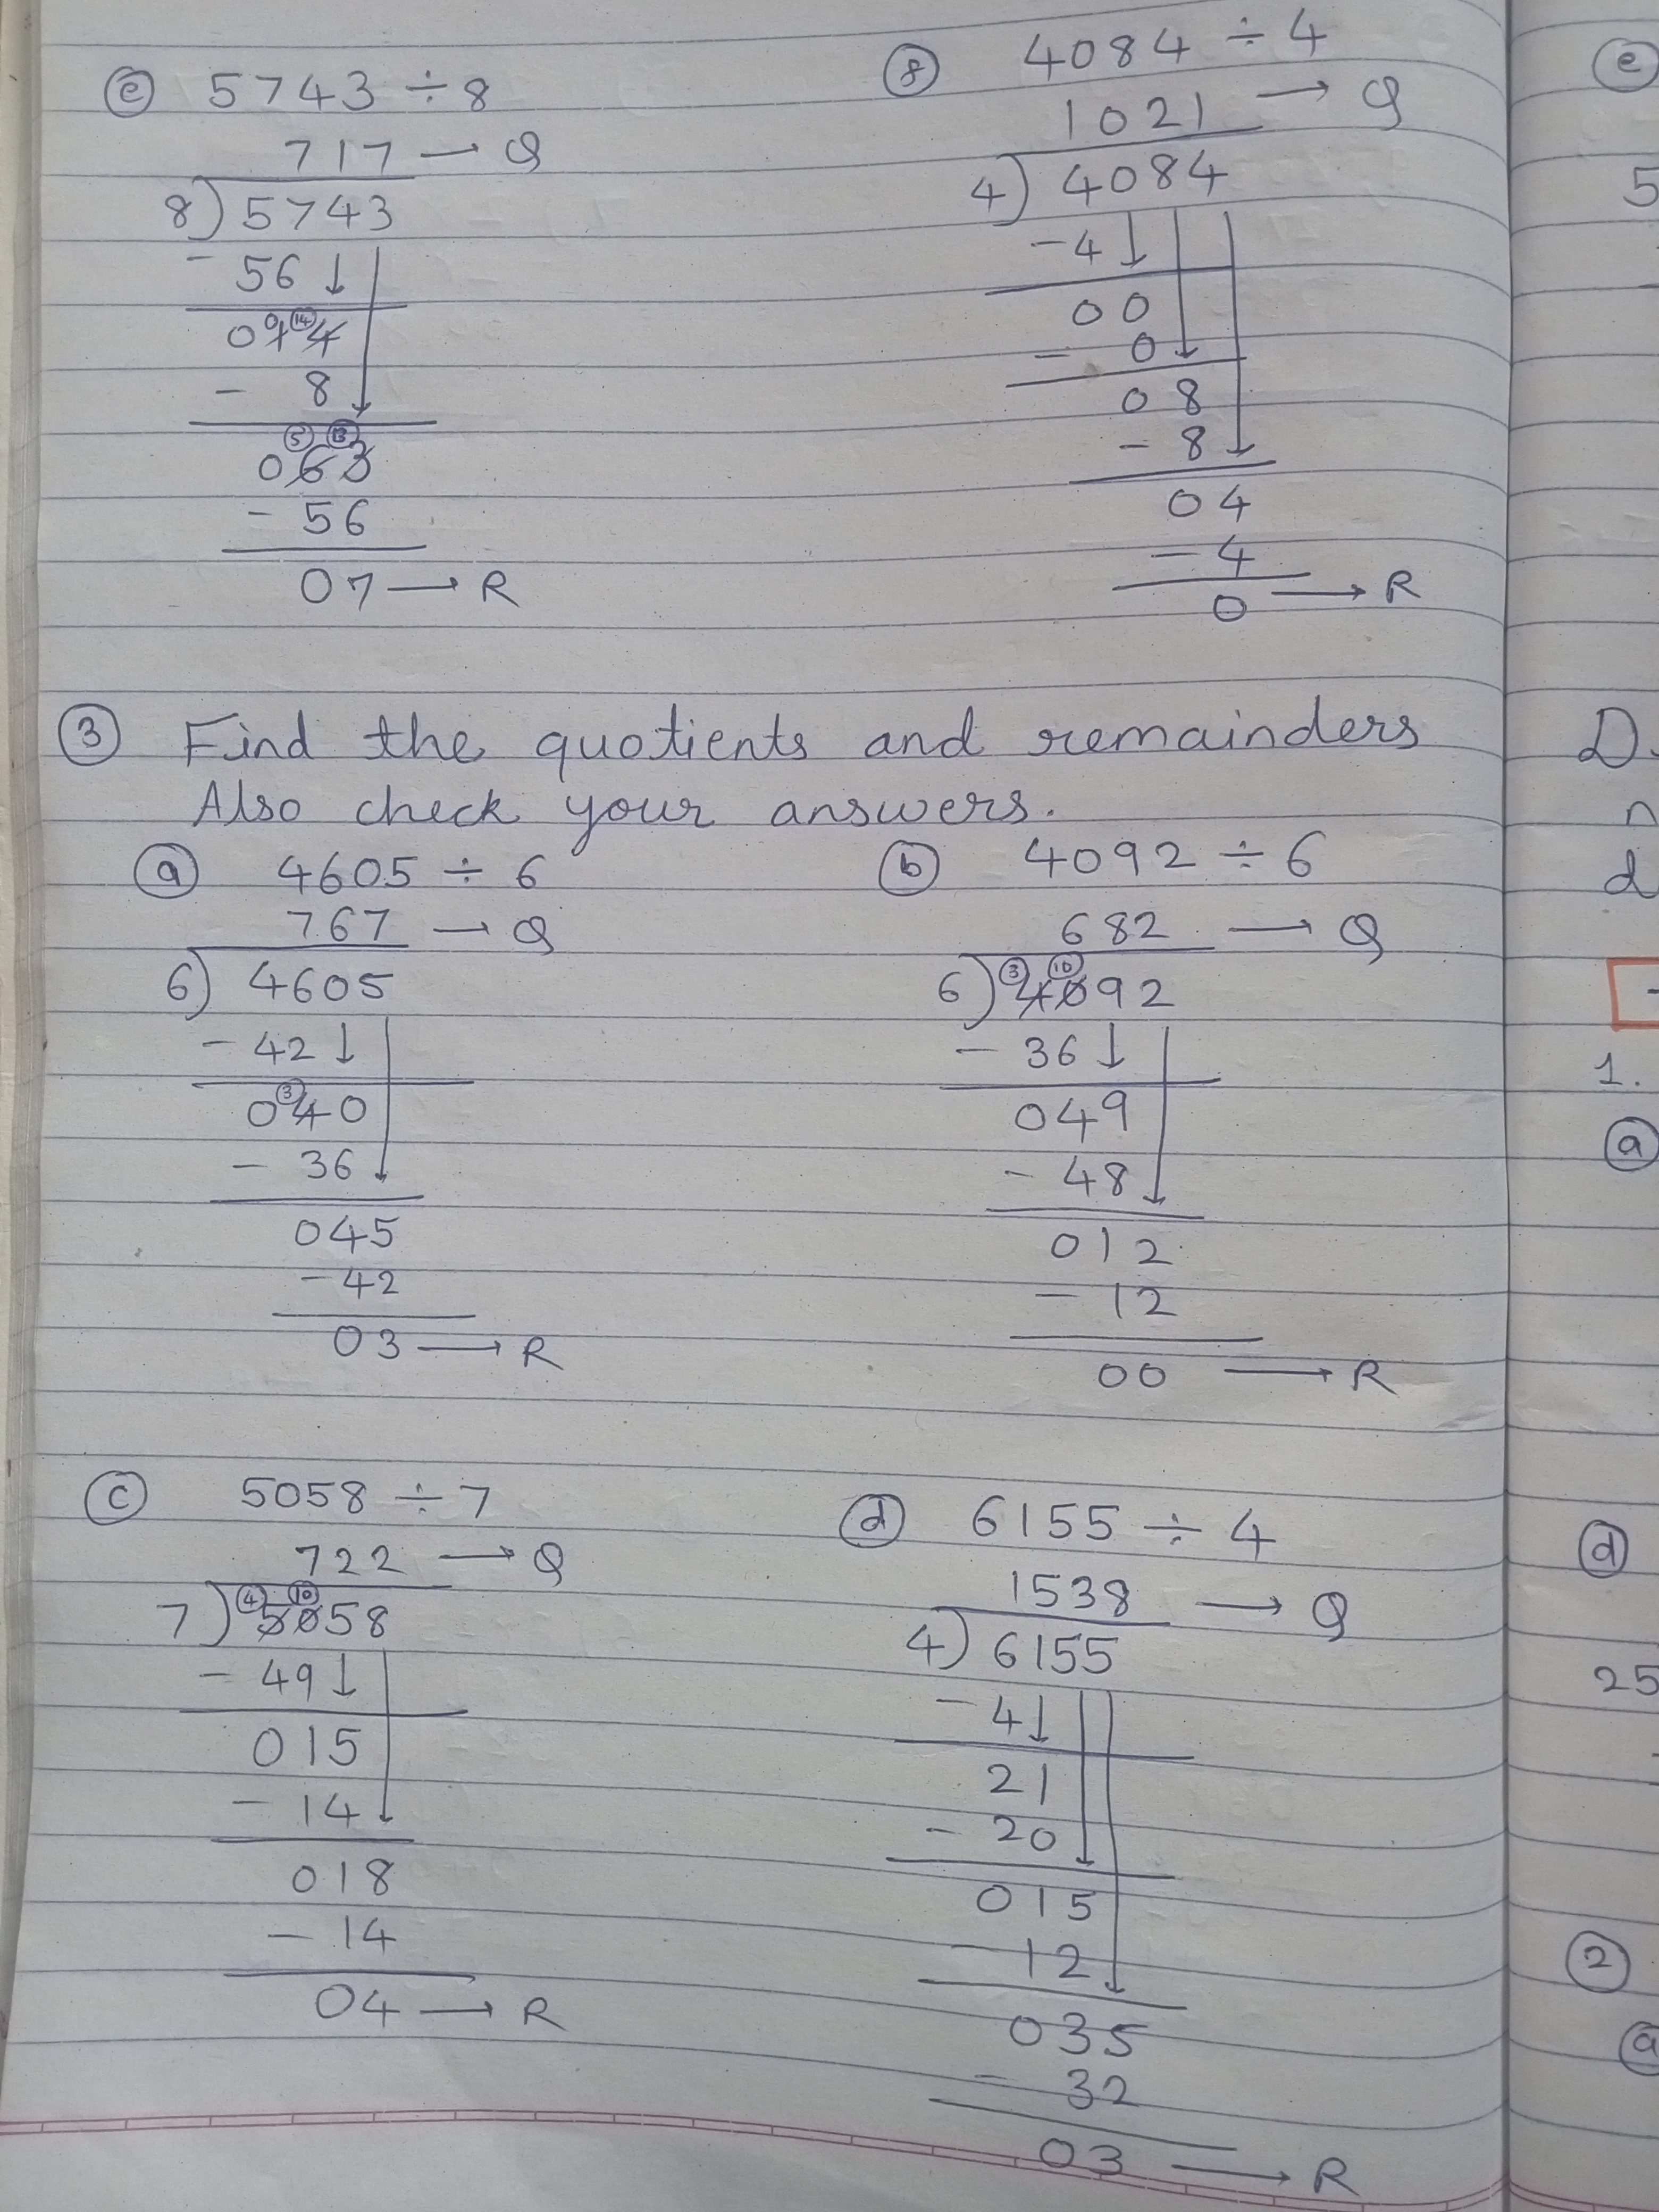 ⓔ 5743 ÷ 8
717 → Q
8) 5743
- 56 ↓
0 0 14
014
- 8
5 13
063
- 56
07 → R
ⓕ 4084 ÷ 4
1021 → Q
4) 4084
- 4 ↓
00
- 0
08
- 8
04
- 4
0 → R
③ Find the quotients and remainders
Also check your answers.
ⓐ 4605 ÷ 6
767 → Q
6) 4605
- 42 ↓
3
040
- 36
045
- 42
03 → R
ⓑ 4092 ÷ 6
682 → Q
3 10
6) 4092
- 36 ↓
049
- 48
012
- 12
00 → R
ⓒ 5058 ÷ 7
722 → Q
4 10
7) 5058
- 49 ↓
015
- 14
018
- 14
04 → R
ⓓ 6155 ÷ 4
1538 → Q
4) 6155
- 4 ↓
21
- 20
015
- 12
035
- 32
03 → R
ⓔ
5
D.
n
d
1.
ⓐ
ⓓ
25
②
ⓐ